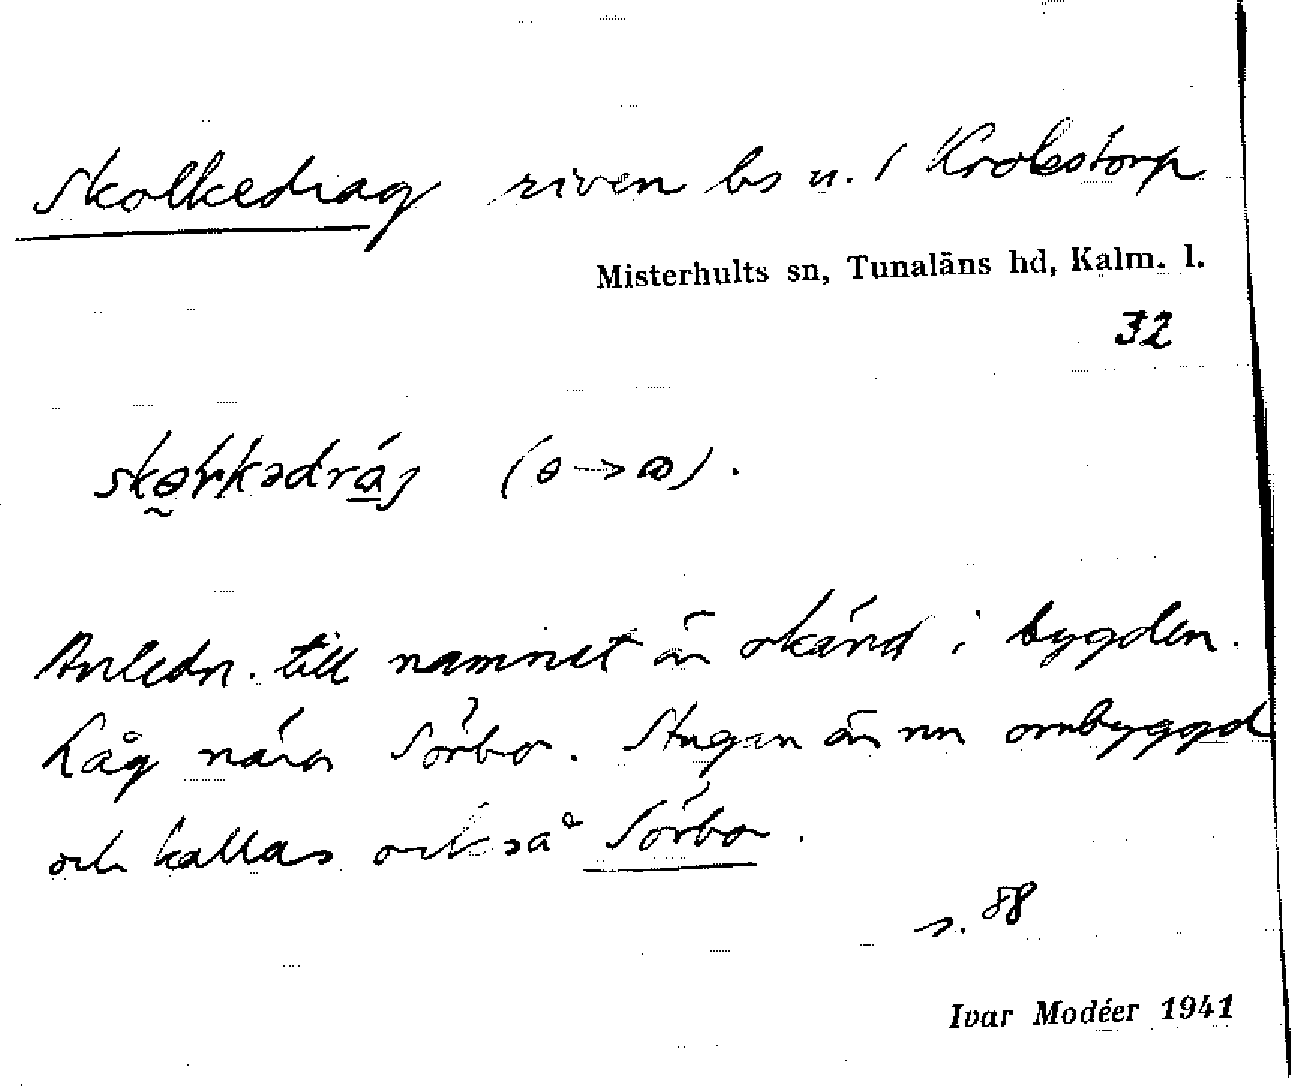 Skolkedrag riven bs u. / Krokstorp
Misterhults sn, Tunaläns hd, Kalm. l.
32
(ɵ → ɷ).
Anledn. till namnet är okänd i bygden.
Låg nära Sörbo. Stugan är nu ombyggd
och kallas också Sörbo.
s. 88
Ivar Modéer 1941